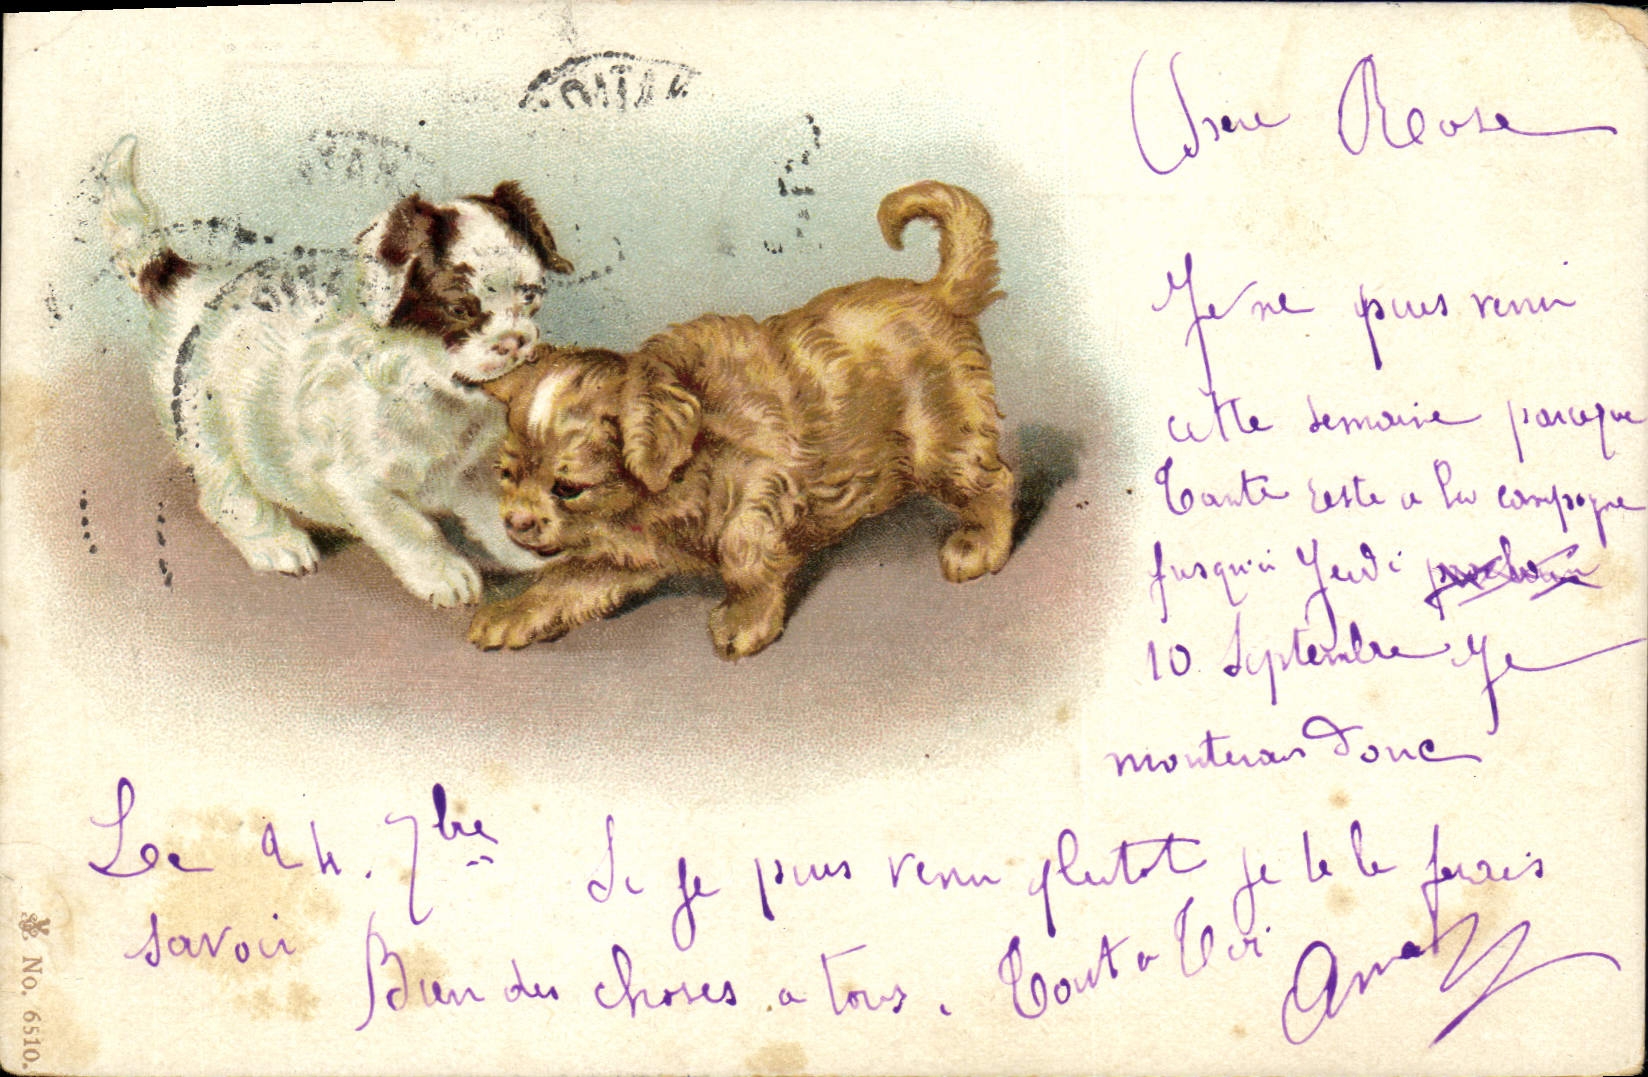 Chère Rose
Je ne puis venir
cette semaine parceque
Tante reste a la campagne
jusqu'à Jeudi prochain
10 Septembre Je
monterai donc
Le 24. 7bre Si je puis venir plutot je te le ferais
savoir Bien des choses a tous. Tout a Toi
No. 6510.